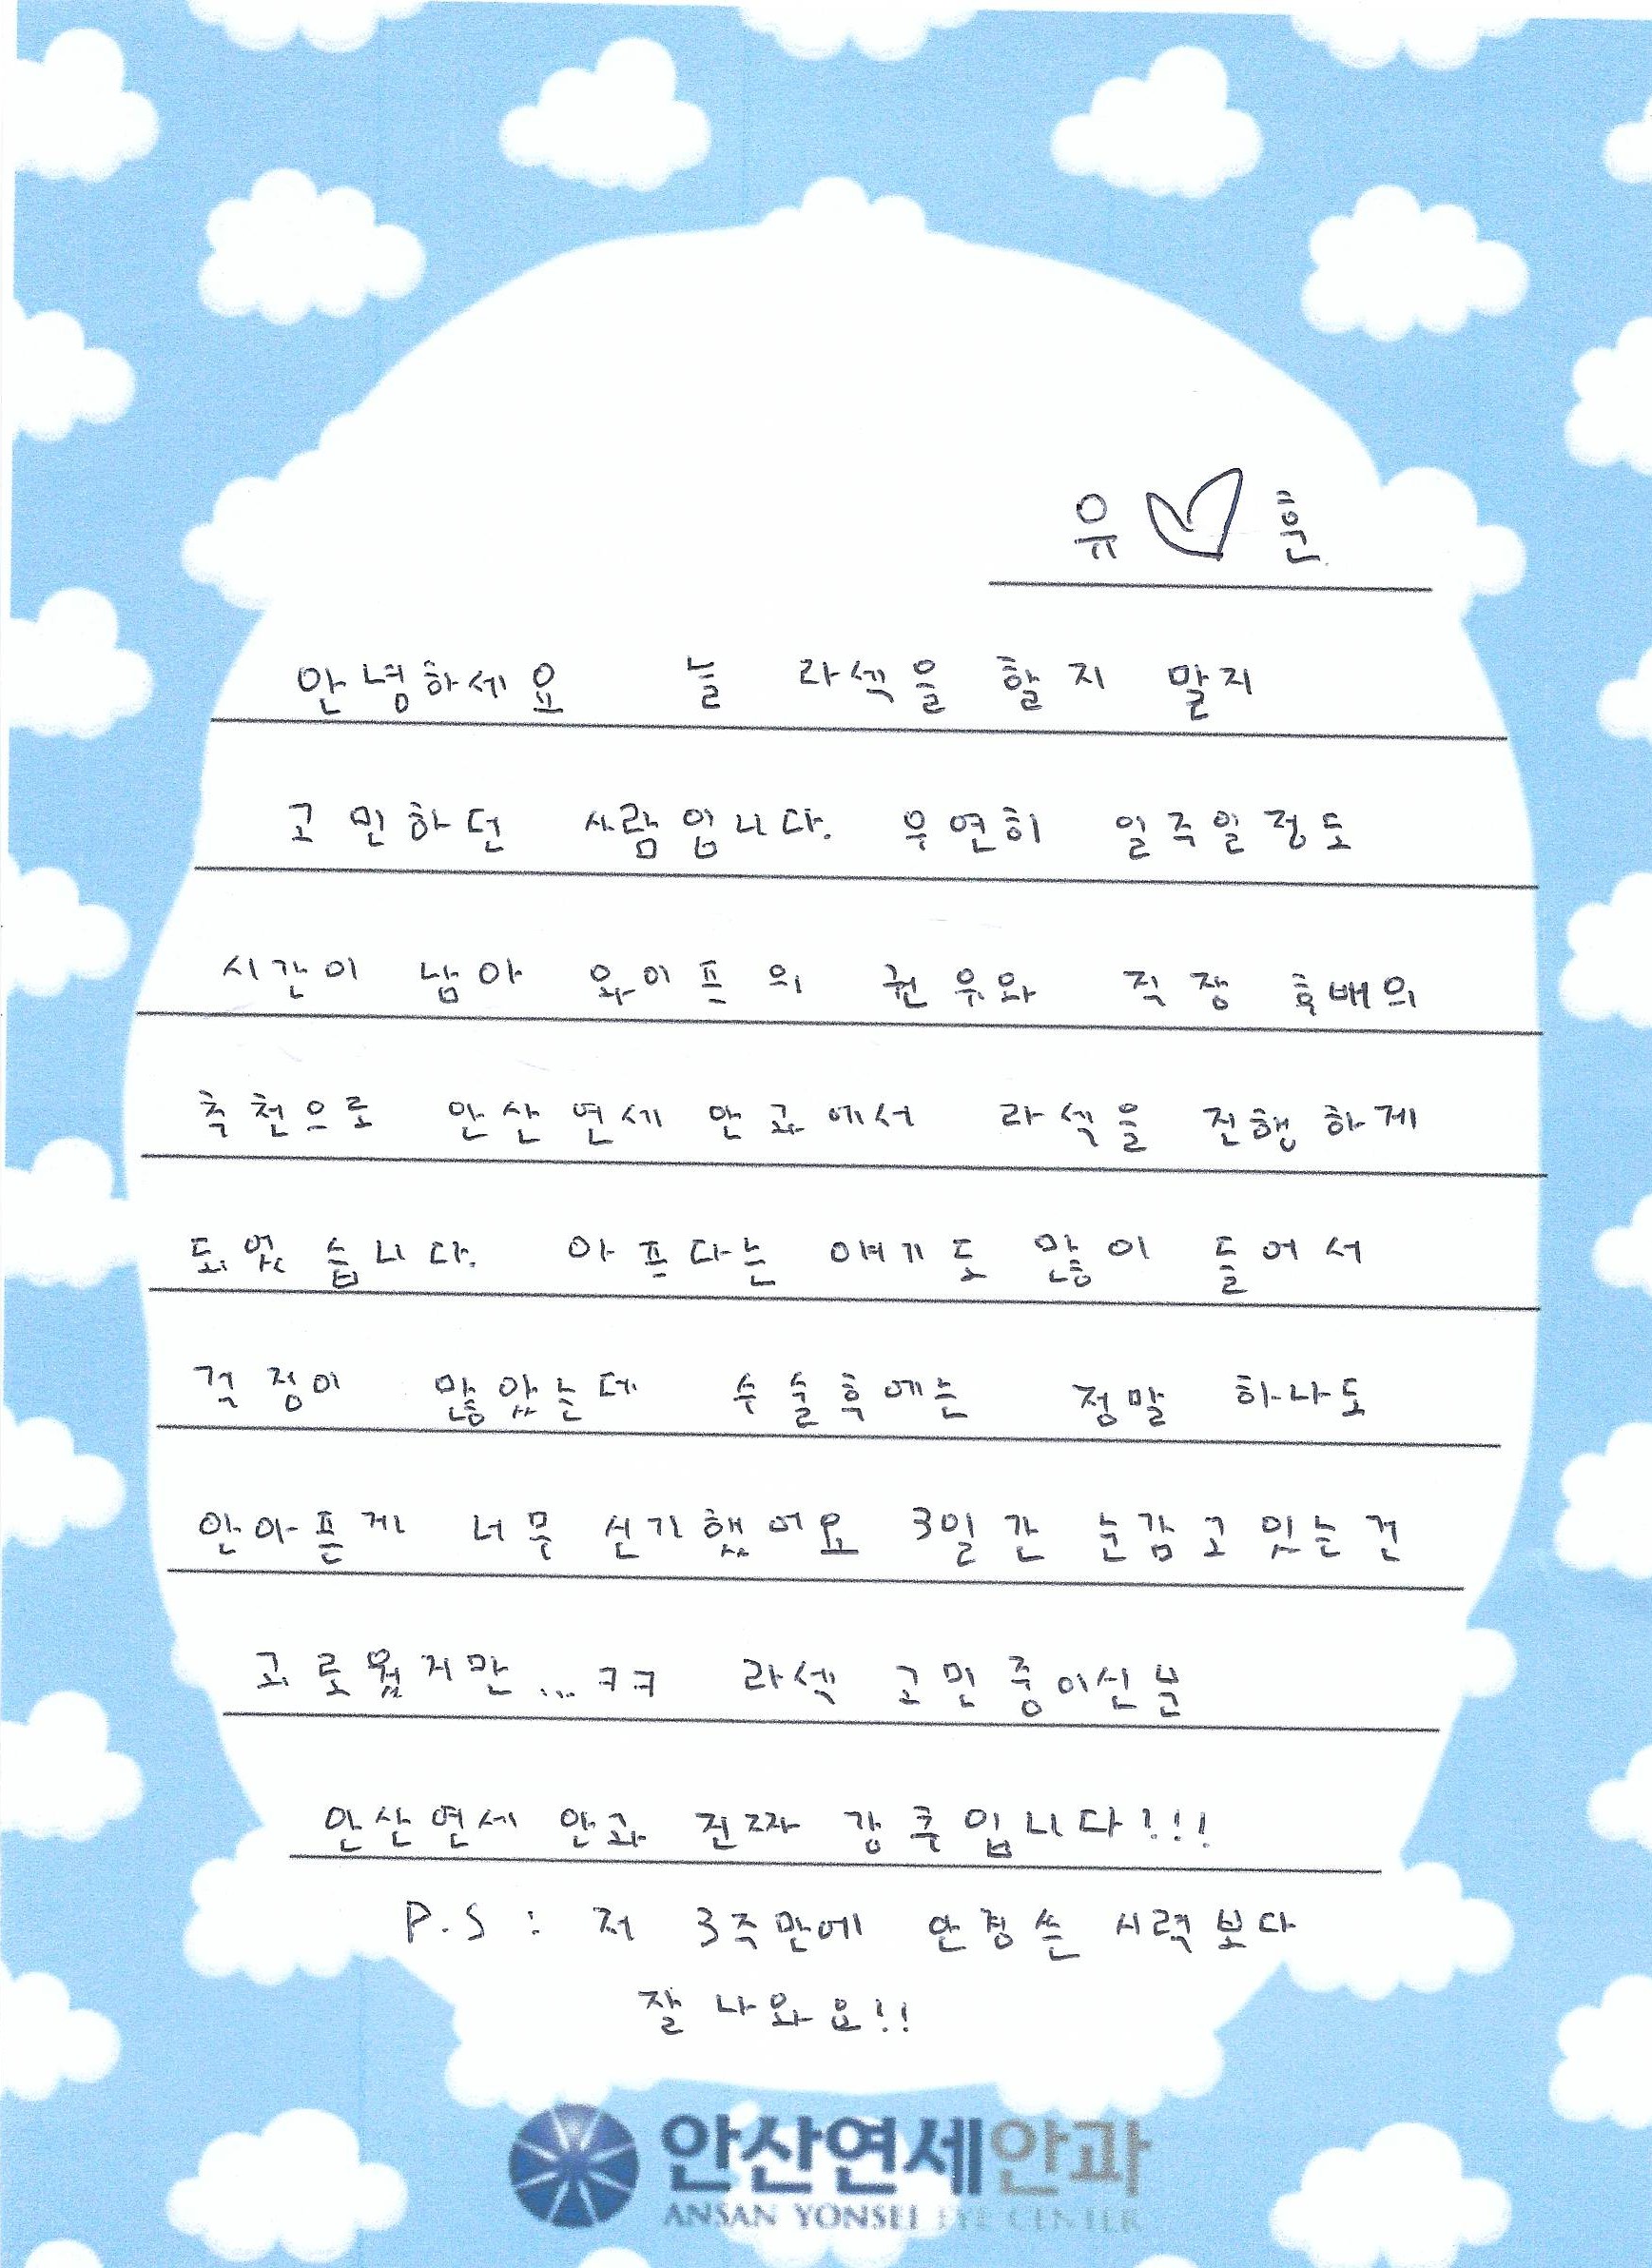 유♡훈
안녕하세요 늘 라섹을 할지 말지
고민하던 사람입니다. 우연히 일주일정도
시간이 남아 와이프의 권유와 직장 후배의
추천으로 안산연세안과에서 라섹을 진행하게
되었습니다. 아프다는 얘기도 많이 들어서
걱정이 많았는데 수술후에는 정말 하나도
안아픈게 너무 신기했어요 3일간 눈감고 있는건
괴로웠지만...ㅋㅋ 라섹 고민중이신분
안산연세안과 진짜 강추입니다!!!
P.S : 저 3주만에 안경쓴 시력보다
잘 나와요!!
안산연세안과
ANSAN YONSEI EYE CENTER